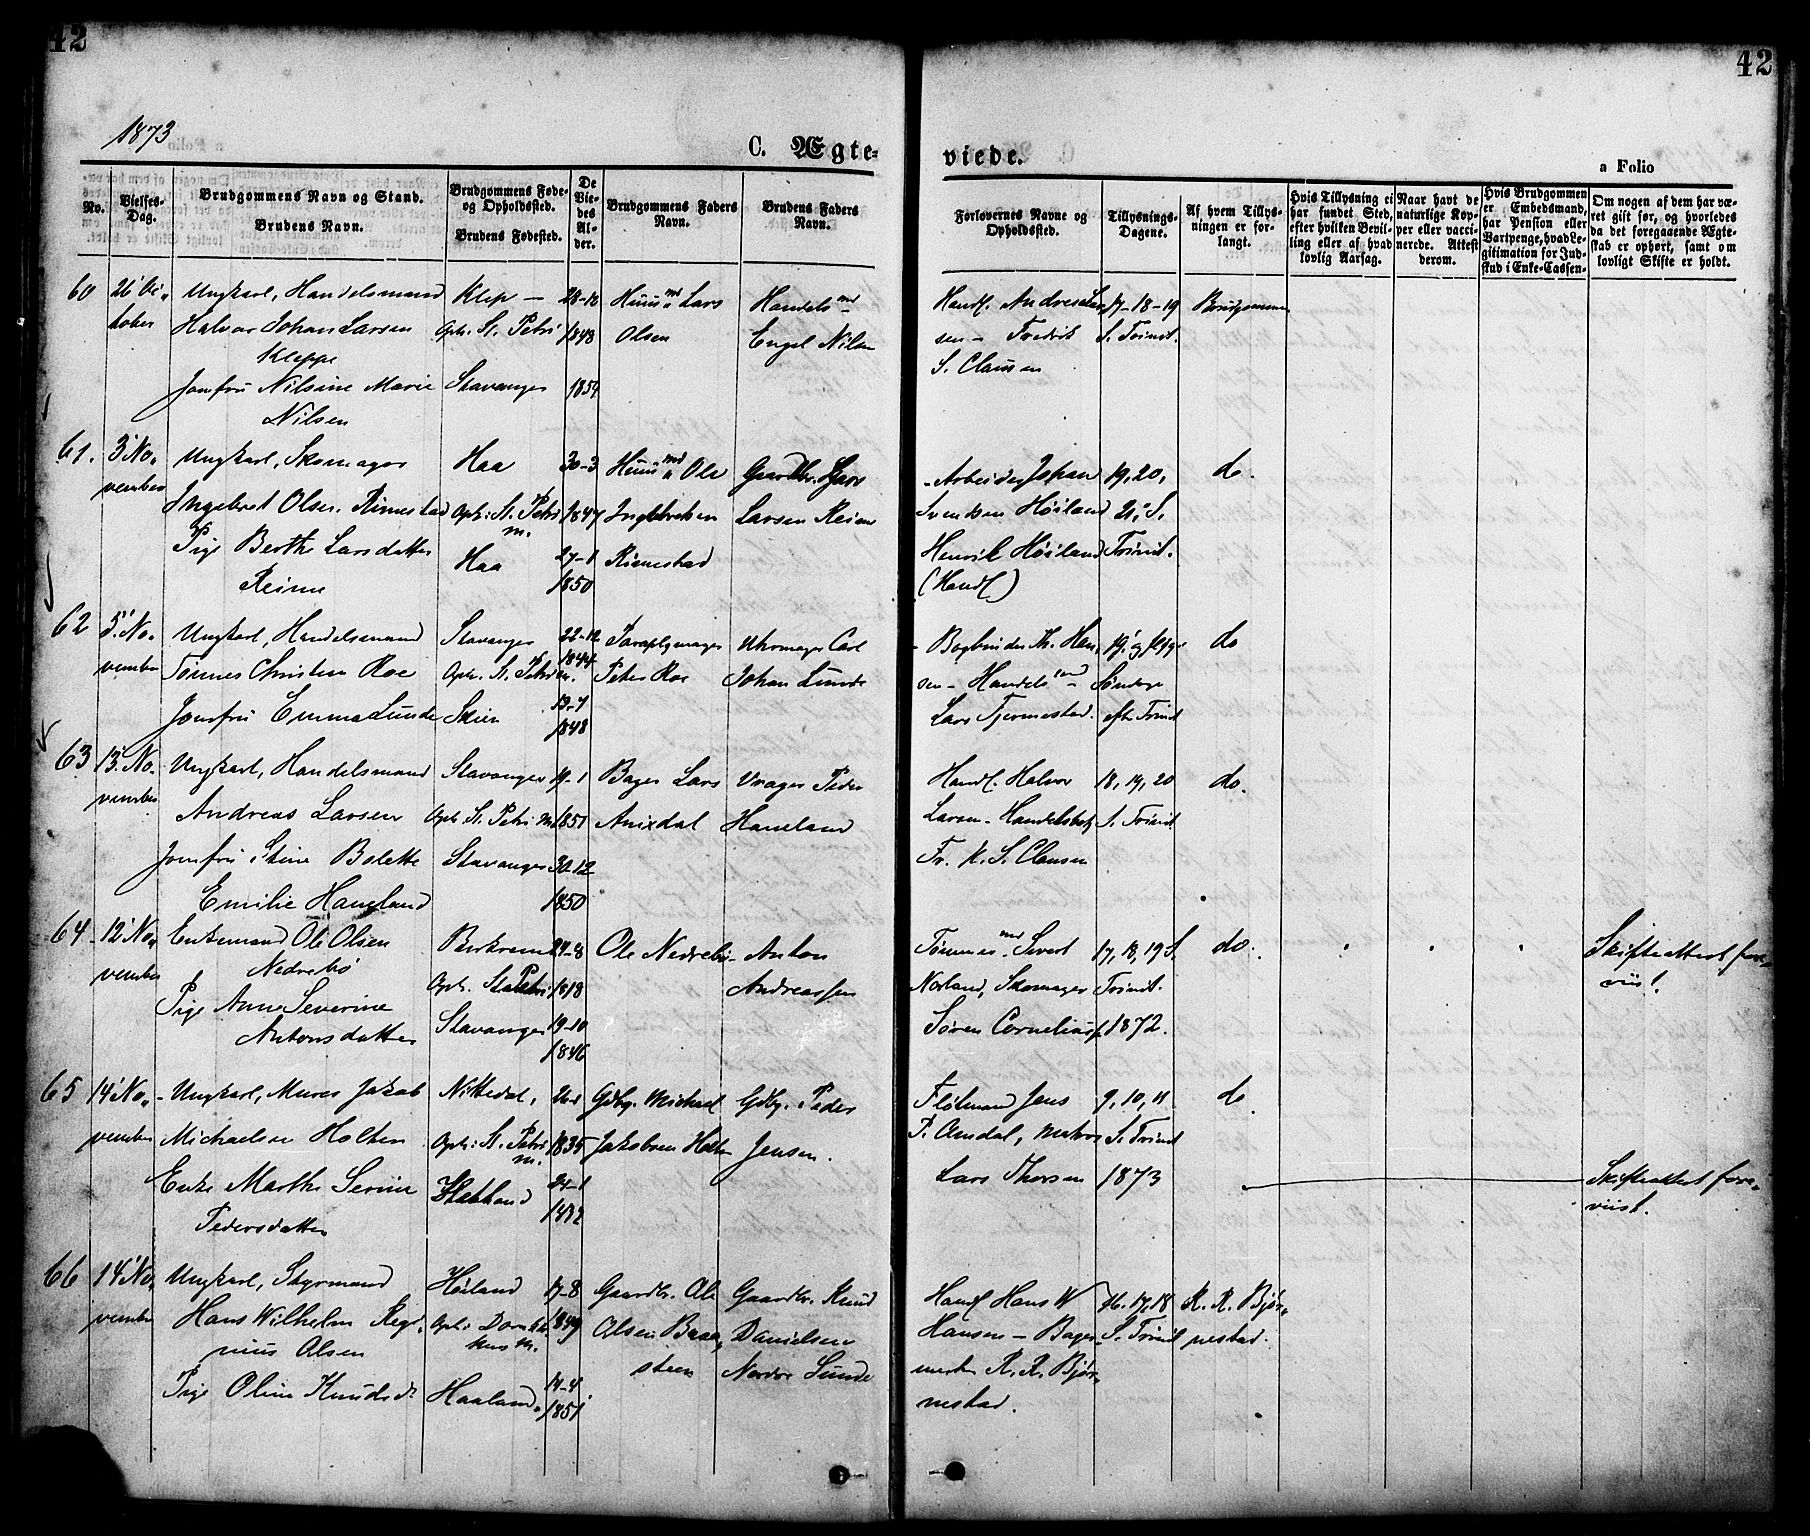 42
42
1873
C. Ægte-
viede.
a Folio
No.
Vielses-
Dag.
Brudgommens Navn og Stand.
Brudens Navn.
Brudgommens Føde-
og Opholdssted.
Brudens Fødested.
De
Vie-
des
Al-
der.
Brudgommens Faders
Navn.
Brudens Faders
Navn.
Forlovernes Navne og
Opholdssted.
Tillysnings-
Dagene.
Af hvem Tillys-
ningen er for-
langt.
Hvis Tillysning ei
har fundet Sted,
efter hvilken Bevil-
ling eller af hvad
lovlig Aarsag.
Naar havt de
naturlige Kop-
per eller vacci-
nerede. Attest
derom.
Hvis Brudgommen
er Embedsmand,
har Pension eller
Vartpenge, hvad Le-
gitimation for Ind-
skud i Enke-Cassen.
Om nogen af dem har væ-
ret gift før, og hvorledes
da det foregaaende Ægte-
skab er ophørt, samt om
lovligt Skifte er holdt.
60
26' Oc-
tober
Ungkarl, Handelsmand
Halvor Johan Larsen
Kleppe
Jomfru Nilsine Marie
Nilsen
Klep -
Oph. St. Petri
Stavanger
1848
1854
Huusmd Lars
Olsen
Handelsmd
Engel Nilsen
Handl. Andreas Lar-
sen - Fredrik
S. Clausen
17-18-19
S. Trinit.
Brudgommen
61.
3' No-
vember
Ungkarl, Skomager
Ingebret Olsen Rimestad
Pige Berthe Larsdatter
Reime
Haa
Oph: St. Petri
m.
Haa
30-3
1847
27-1
1850
Huusmd Ole
Ingebretsen
Rimestad
Gaardbr. Lars
Larsen Reime
Arbeider Johan
Svendsen Höiland
Henrik Höiland
(Handl.)
19, 20,
21' S.
Trinit.
do.
62
5' No-
vember
Ungkarl, Handelsmand
Tönnes Christian Roe
Jomfru Emma Lunde
Stavanger
Oph. St. Petri m.
Skien
22-12
1844
13-7
1848
Paraplymager
Peter Roe
Uhrmager Carl
Johan Lunde
- Bogbinder Th. Han-
sen - Handelsmd -
Lars Tjermestad.
Söndage
eft. Trinit
do
63
13' No-
vember
Ungkarl, Handelsmand
Andreas Larsen
Jomfru Stine Bolette
Emilie Haneland
Stavanger
Oph. St. Petri M.
Stavanger
1851
30-12
1850
Bager Lars
Anixdal
Vrager Peder
Haneland
Handl. Halvor
Larsen - Handelsbetj
Fr. K. S. Clausen
18, 19, 20
S. Trinit
do.
64
12' No-
vember
Enkemand Ole Olsen
Nedrebö
Pige Anne Severine
Antonsdatter
Berkrem
Oph. St. Petri
Stavanger
24-8
1818
19-10
1846
Ole Nedrebö
Anton
Andreassen
Tömmermd Sivert
Norland, Skomager
Sören Corneliuss.
17, 18, 19 S.
Trinit.
1872.
do.
Skifteattest fore-
viist.
65
14' No-
vember
Ungkarl, Murer Jakob
Michaelsen Holten
Enke Marthe Serine
Pedersdatter
Nittedal,
Oph: St. Petri
m.
1835
24-1
Gdbg. Michael
Jakobsen Holten
Gdbg. Peder
Jensen.
Flötmand Jens
P. Amdal, Matros
Lars Thorsen
9, 10, 11
S. Trinit
1873
do
Skifteattest fore-
viist.
66
14' No-
vember
Ungkarl, Styrmand
Hans Wilhelm Regi-
nius Olsen
Pige Oline Knudsdr
Höiland
Oph: Domkir-
kens M.
Haaland
17-8
1849
14-4
1851
Gaardbr. Ole
Olsen Braa-
steen
Gaardbr. Knud
Danielsen
Nordre Sunde
Handl Hans W
Hansen - Bager-
mester R. R. Björ-
nestad.
16. 17, 18
S. Trinit
R. R. Björ-
nestad.